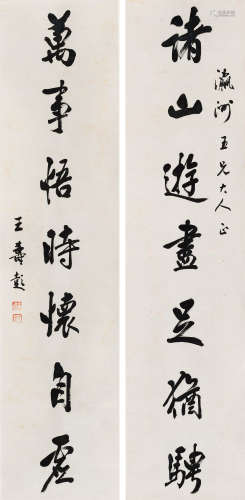 諸山遊盡足猶騁
瀛河五兄大人正
萬事悟時懷自虛
王壽彭